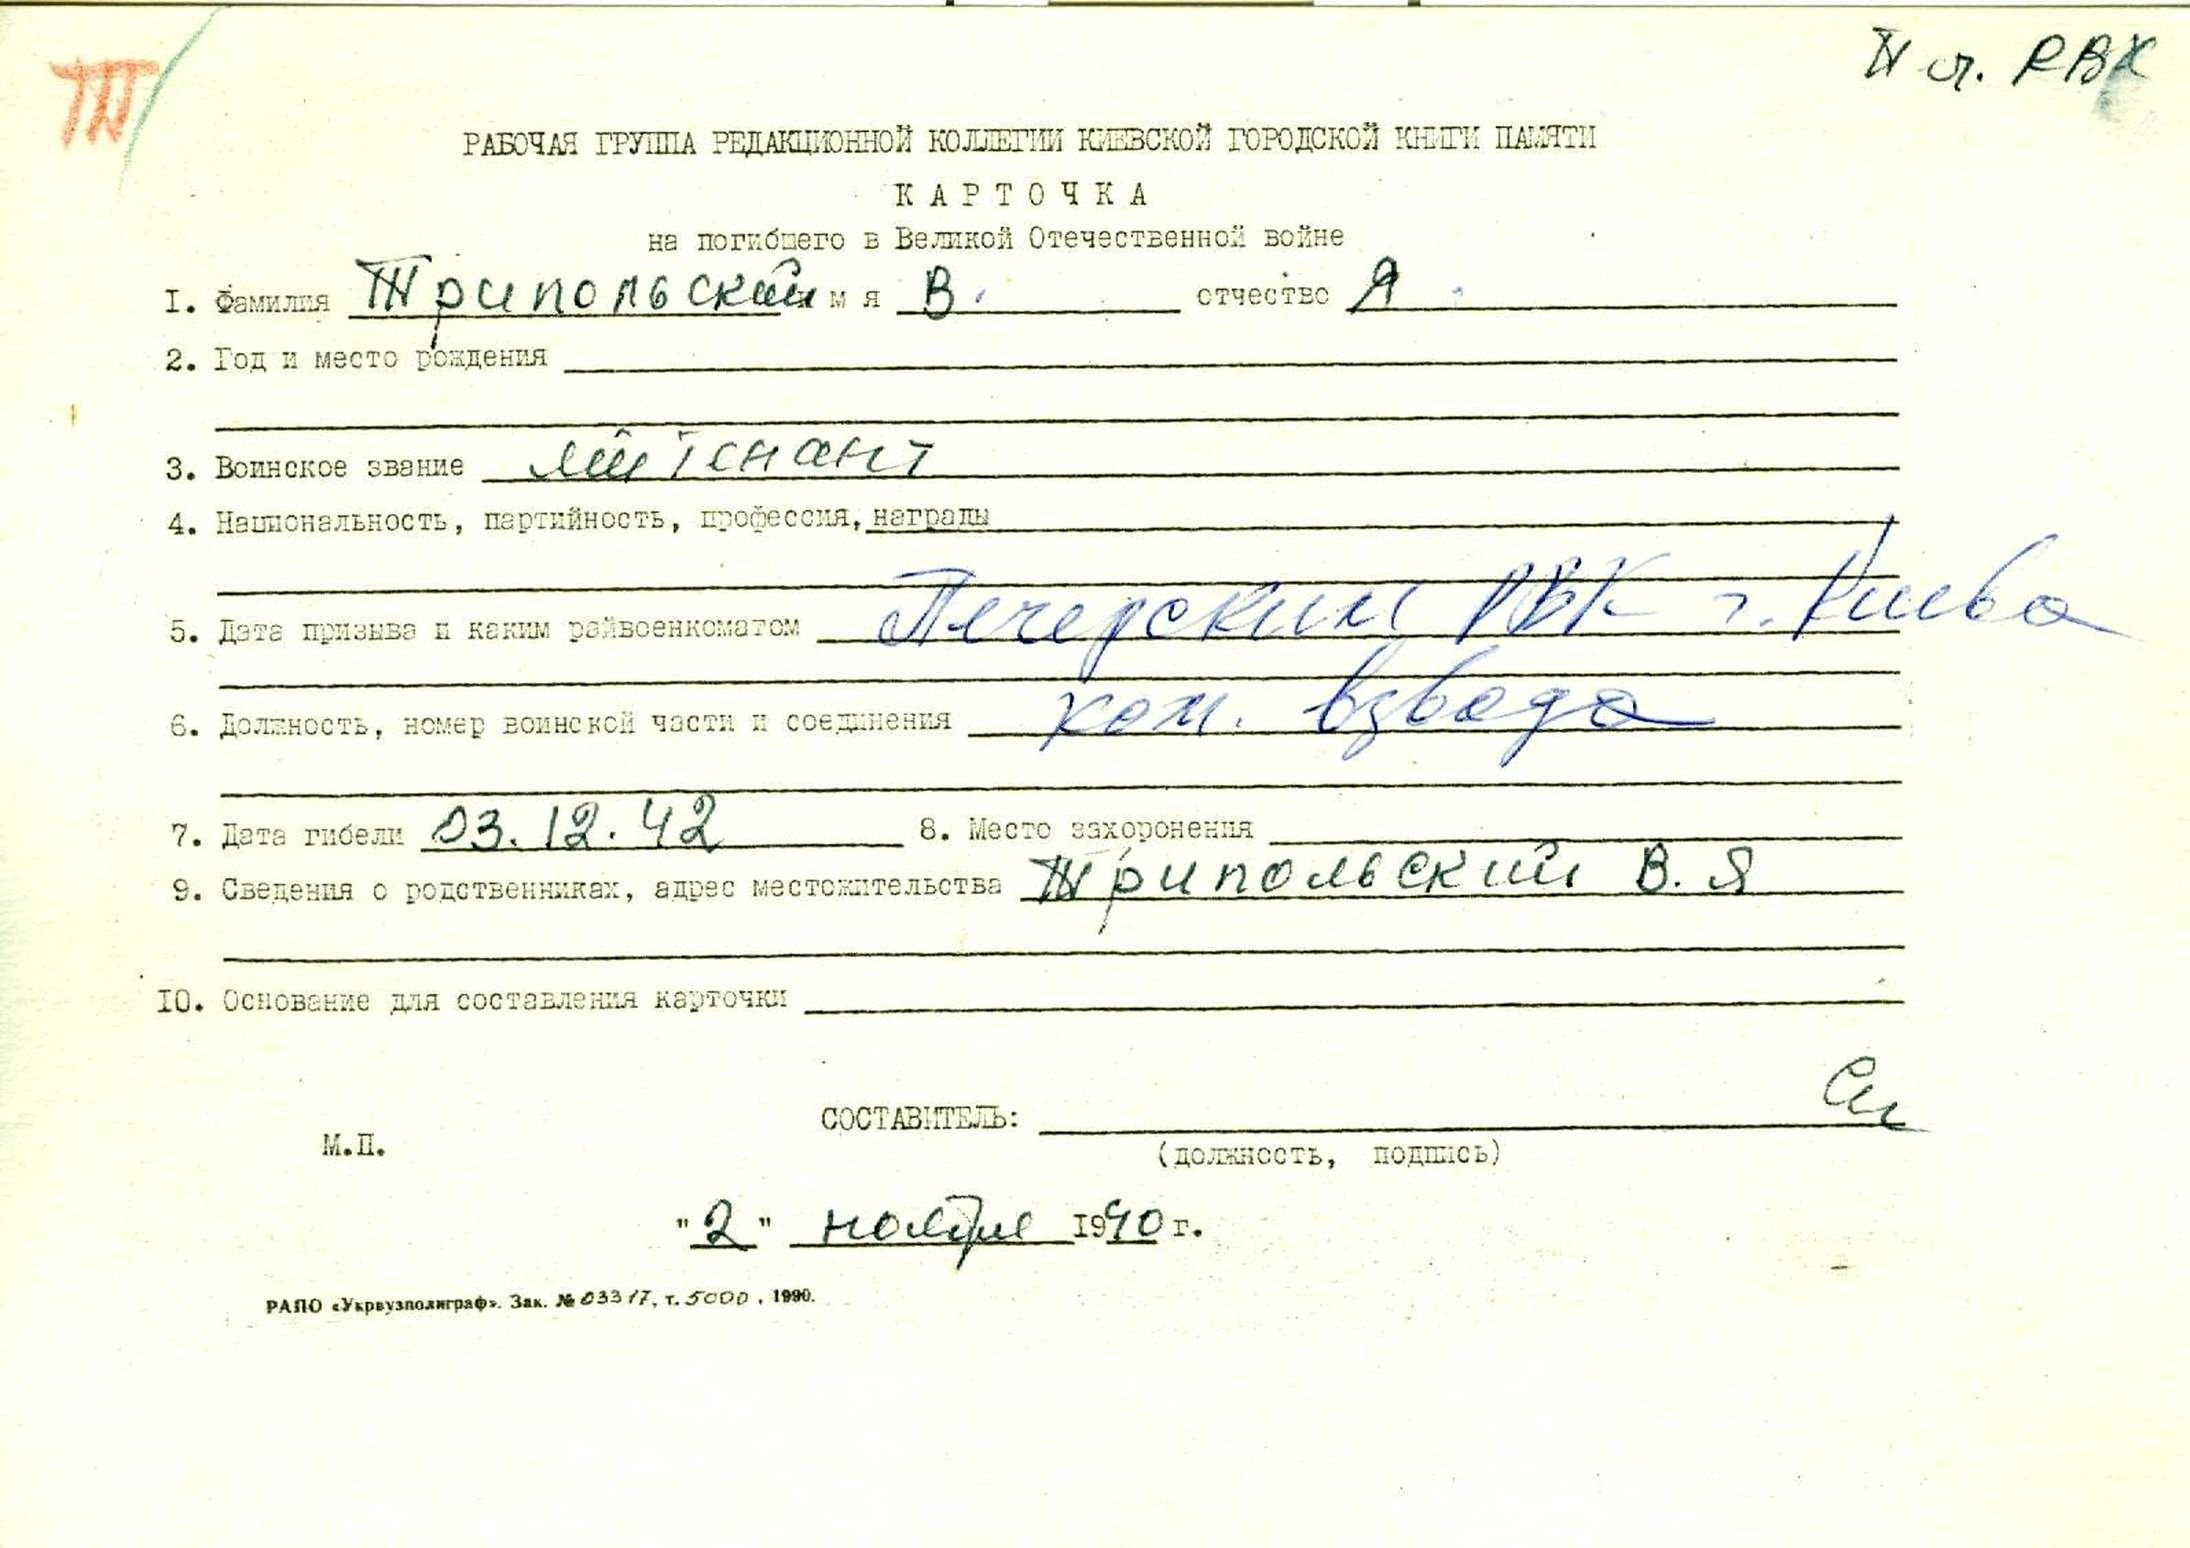 Т
РВК
РАБОЧАЯ ГРУППА РЕДАКЦИОННОЙ КОЛЛЕГИИ КИЕВСКОЙ ГОРОДСКОЙ КНИГИ ПАМЯТИ
КАРТОЧКА
на погибшего в Великой Отечественной войне
I. Фамилия Трипольский имя В. отчество Я.
2. Год и место рождения
3. Воинское звание лейтенант
4. Национальность, партийность, профессия, награды
5. Дата призыва и каким райвоенкоматом Печерским РВК г. Киева
6. Должность, номер воинской части и соединения ком. взвода
7. Дата гибели 03.12.42 8. Место захоронения
9. Сведения о родственниках, адрес местожительства Трипольский В. Я
IO. Основание для составления карточки
СОСТАВИТЕЛЬ:
М.П.
(должность, подпись)
"2" ноября 1990 г.
РАПО «Укрвузполиграф». Зак. № 03317, т. 5000, 1990.